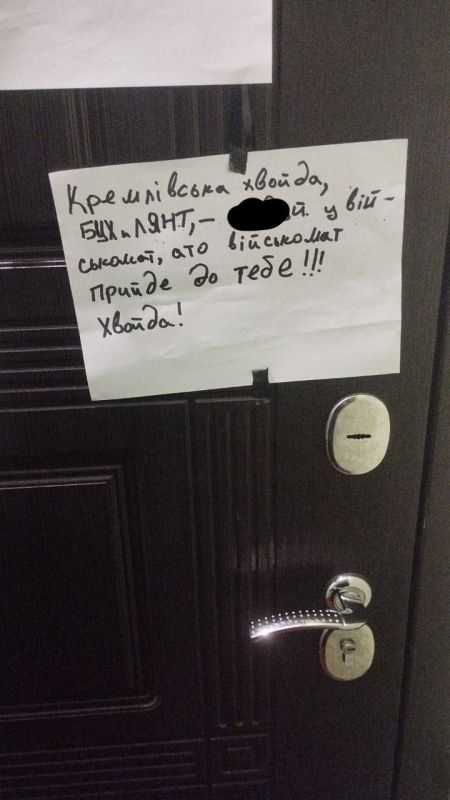 Кремлівська хвойда,
БУХиЛЯНТ,– у вій-
ськомат, ато військомат
прийде до тебе!!!
Хвойда!